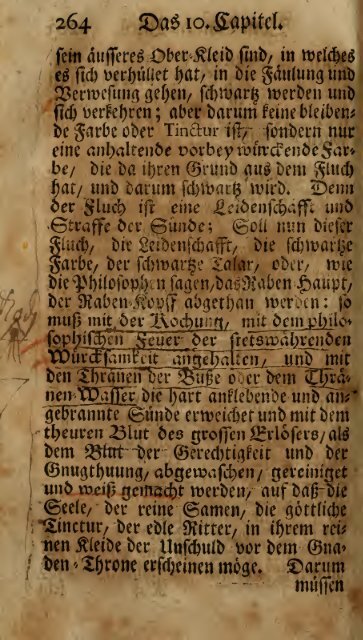 264 Das 10. Capitel.
sein äusseres Ober-Kleid sind, in welches
es sich verhüllet hat, in die Fäulung und
Verwesung gehen, schwartz werden und
sich verkehren; aber darum keine bleiben-
de Farbe oder Tinctur ist, sondern nur
eine anhaltende vorbey würckende Far-
be, die da ihren Grund aus dem Fluch
hat, und darum schwartz wird. Denn
der Fluch ist eine Leidenschafft und
Straffe der Sünde; Soll nun dieser
Fluch, die Leidenschafft, die schwartze
Farbe, der schwartze Talar, oder, wie
die Philosophen sagen, das Raben-Haupt,
der Raben-Kopff abgethan werden: so
muß mit der Kochung, mit dem philo-
sophischen Feuer der stetswährenden
Würcksamkeit angehalten, und mit
den Thränen der Buße oder dem Thrä-
nen-Wasser die hart anklebende und an-
gebrannte Sünde erweichet und mit dem
theuren Blut des grossen Erlösers, als
dem Blut der Gerechtigkeit und der
Gnugthuung, abgewaschen, gereiniget
und weiß gemacht werden, auf daß die
Seele, der reine Samen, die göttliche
Tinctur, der edle Ritter, in ihrem rei-
nen Kleide der Unschuld vor dem Gna-
den-Throne erscheinen möge. Darum
müssen